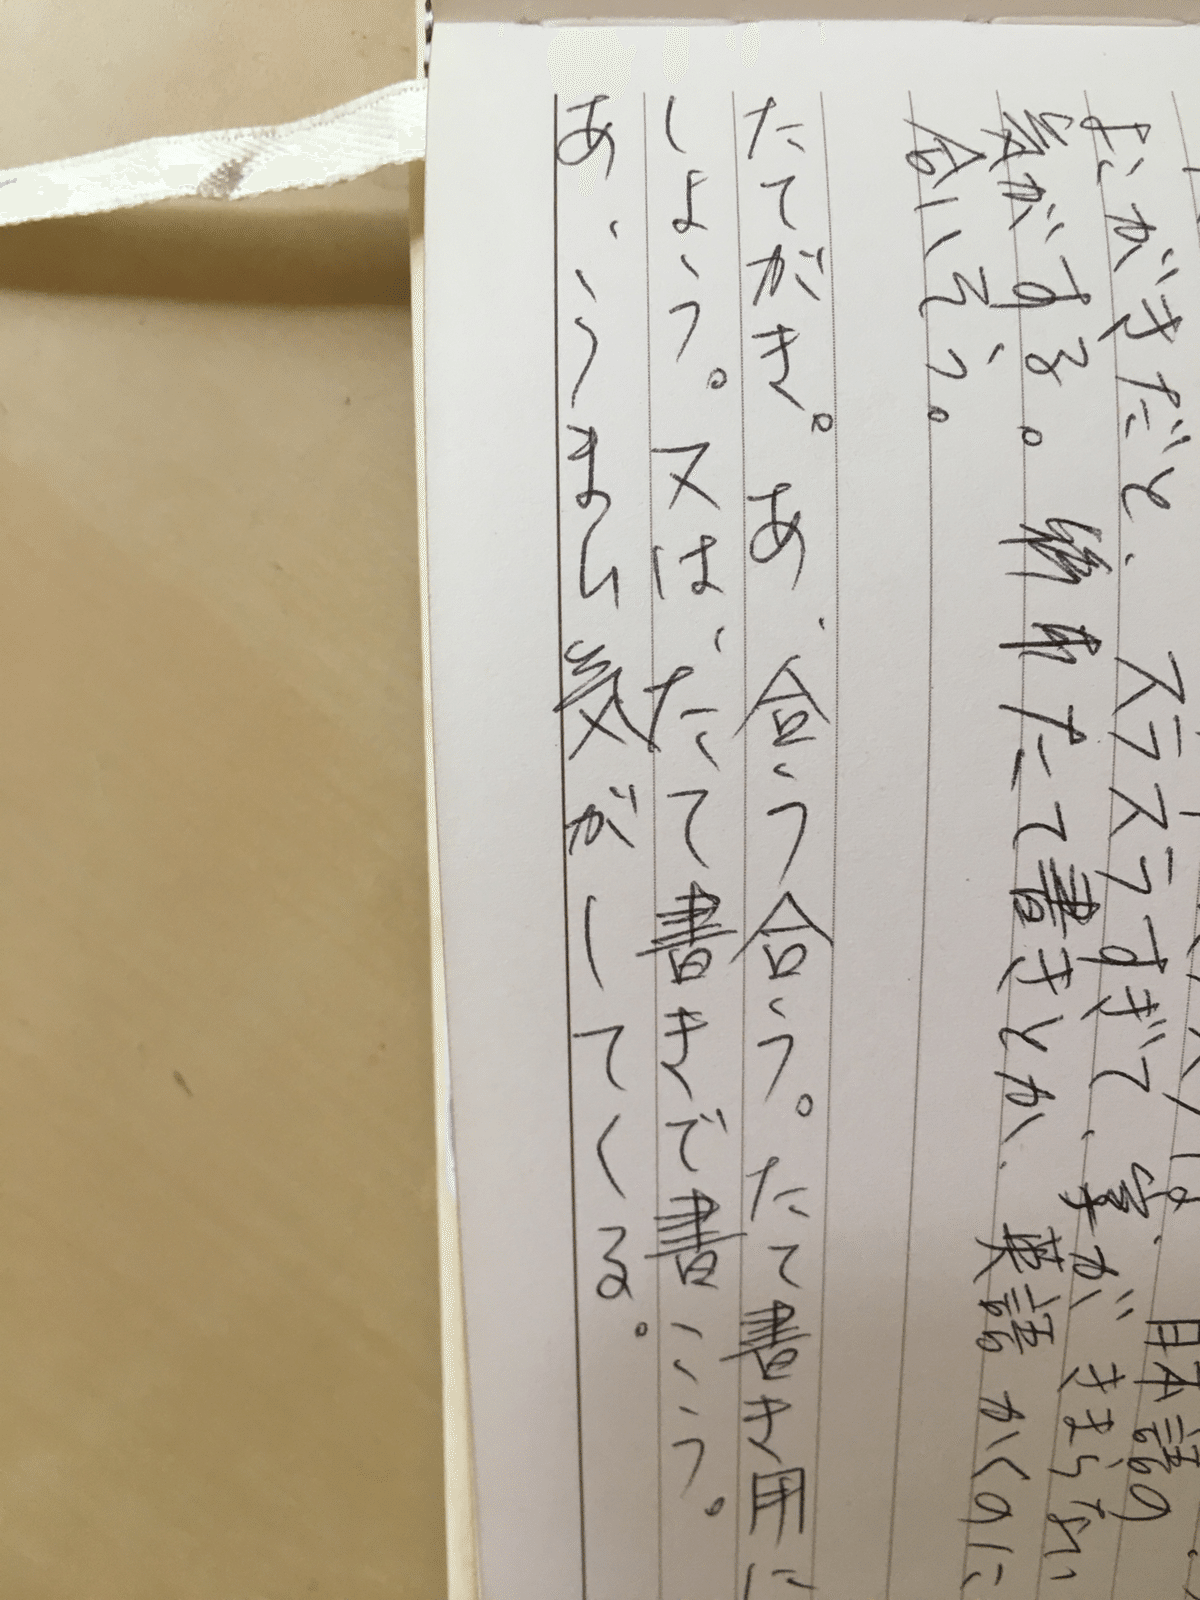 日本語の、
よこがきだと、スラスラすぎて、字がきまらない
気がする。たて書きとか、英語かくのに
合いそう。
たてがき。あ、合う合う。たて書き用に
しよう。又は、たて書きで書こう。
あ、うまい気がしてくる。